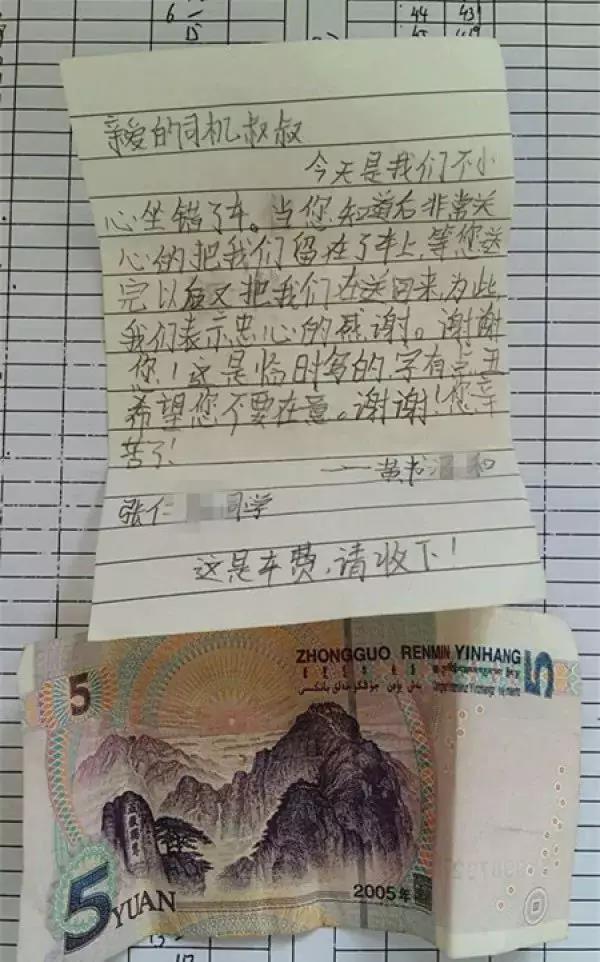 6
15
44
43
45
419
亲爱的司机叔叔
今天是我们不小
心坐错了车。当您知道后非常关
心的把我们留在了车上,等您送
完以后又把我们在送回来,为此,
我们表示忠心的感谢。谢谢
您!这是临时写的,字有点丑
希望您不要在意。谢谢!您辛
苦了!
——黄书 和
张仁 同学
这是车费,请收下!
ZHONGGUO RENMIN YINHANG
5
5
5 YUAN
2005年